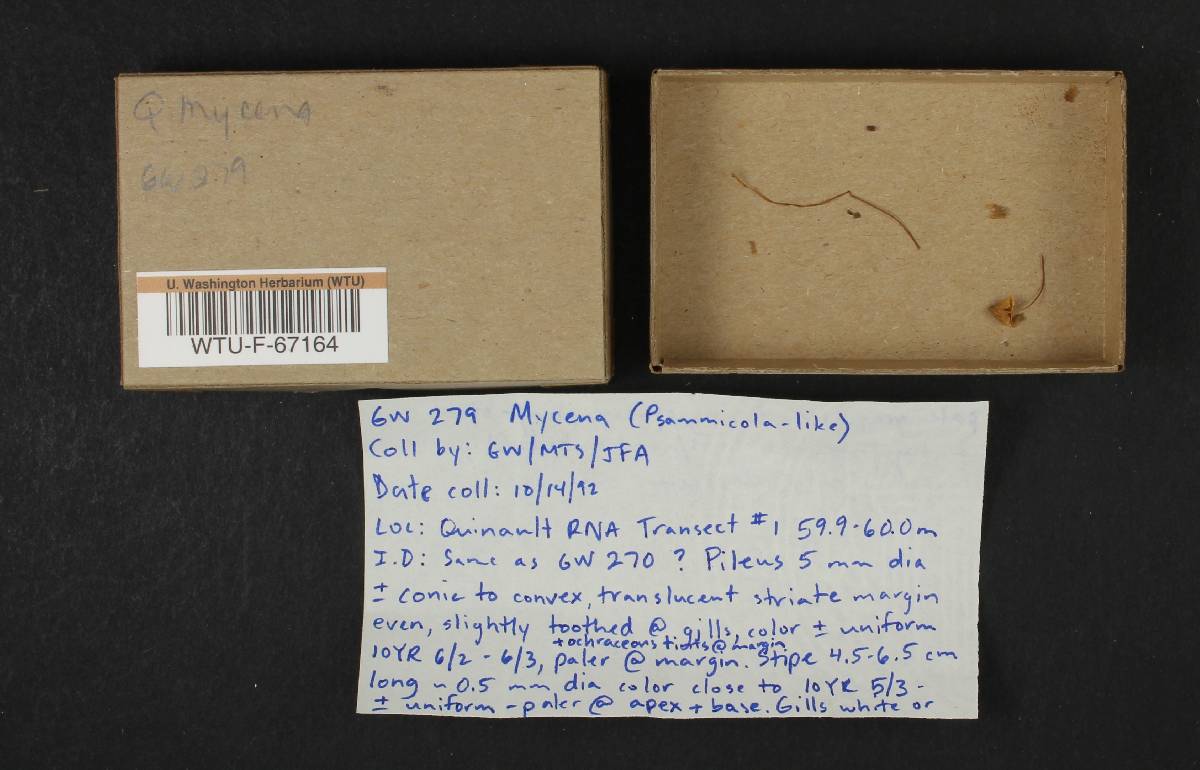 Q Mycena
GW 279
U. Washington Herbarium (WTU)
WTU-F-67164
GW 279 Mycena (Psammicola-like)
Coll by: GW/MTS/JFA
Date coll: 10/14/92
Loc: Quinault RNA Transect #1 59.9-60.0m
I.D: Same as GW 270 ? Pileus 5 mm dia
± conic to convex, translucent striate margin
even, slightly toothed @ gills, color ± uniform
+ochraceous tints @ margin
10YR 6/2 - 6/3, paler @ margin. Stipe 4.5-6.5 cm
long ~ 0.5 mm dia color close to 10YR 5/3 -
± uniform - paler @ apex + base. Gills white or